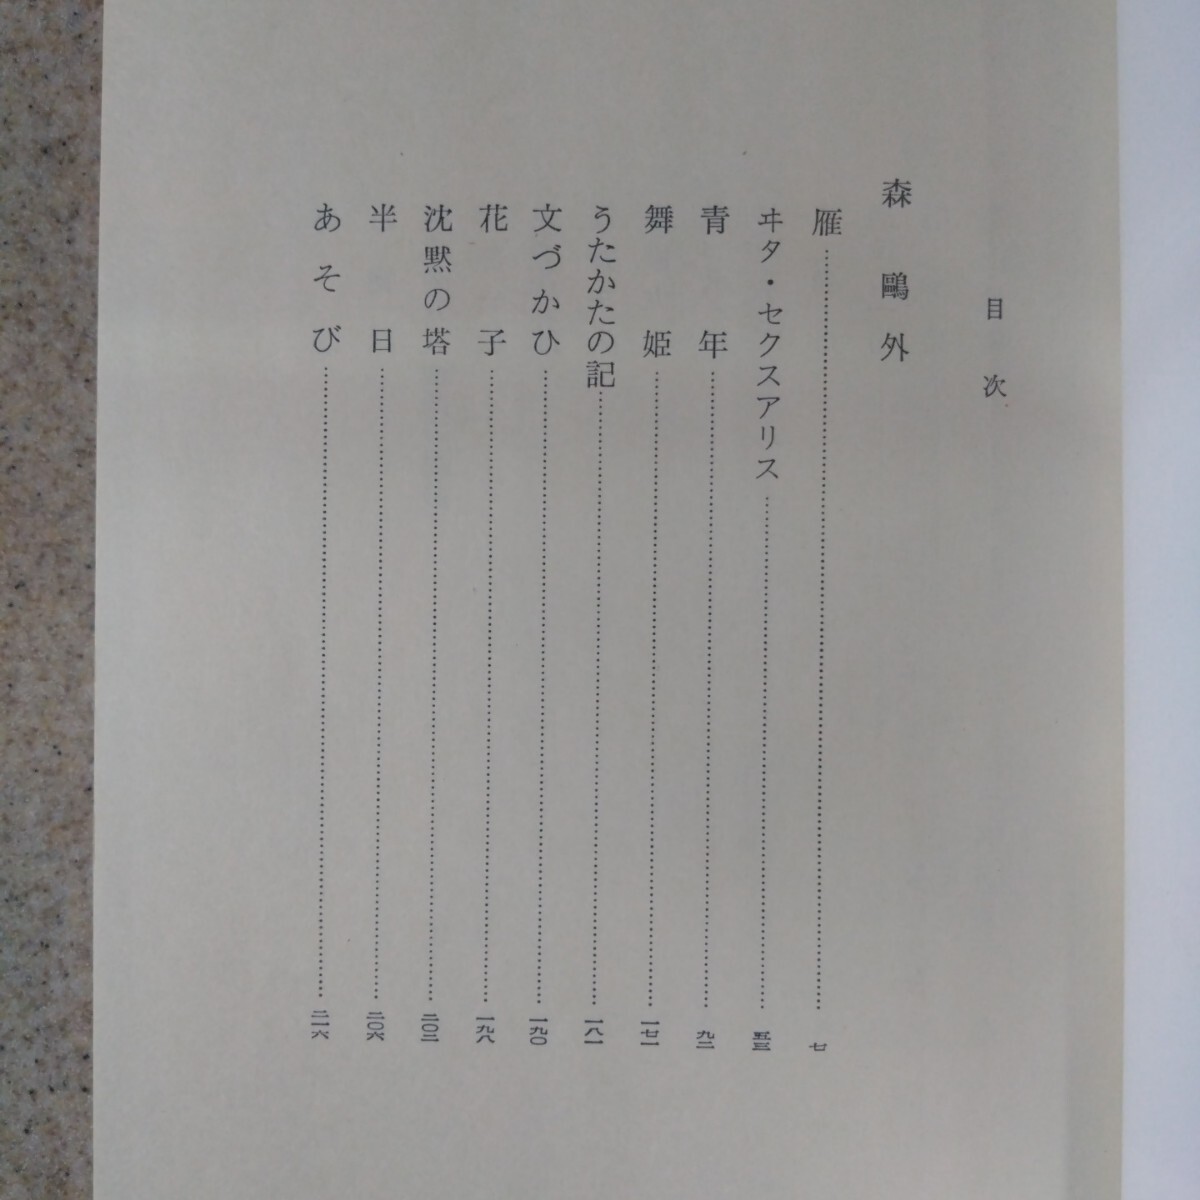 目次
森鷗外
雁……七
ヰタ・セクスアリス……五三
青年……九二
舞姫……一七一
うたかたの記……一八一
文づかひ……一九〇
花子……一九八
沈黙の塔……二〇二
半日……二〇六
あそび……二一六